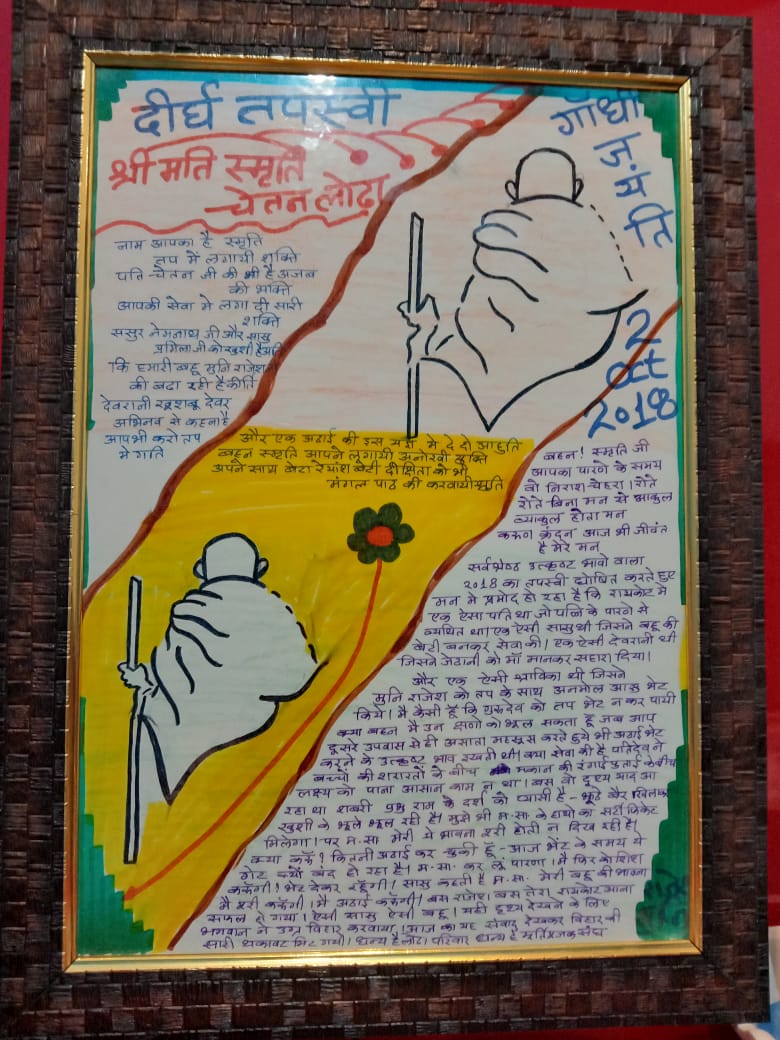 दीर्घ तपस्वी
श्रीमति स्मृति
चेतन लोढ़ा
गाँधी
जयंति
2
oct
2018
नाम आपका है स्मृति
तप में लगायी शक्ति
पति चेतन जी की भी है अजब
की भक्ति
आपकी सेवा मे लगा दी सारी
शक्ति
ससुर नेमनाथ जी और सासु
प्रमिला जी को खुशी है अति
कि हमारी बहू मुनि राजेश
की बढा रही है कीर्ति
देवरानी खुशबू देवर
अभिनव से कहना है
आपभी करो तप
मे गति
और एक अठाई की इस यज्ञ मे दे दो आहुति
बहन स्मृति आपने लगायी अनोखी युक्ति
अपने साथ बेटा रेयांश बेटी दीक्षिता को भी
मंगल पाठ की करवायी स्तुति
बहन! स्मृति जी
आपका पारणे के समय
वो निराश चेहरा। रोते
रोते बिना मन से आकुल
व्याकुल होता मन
करुण क्रंदन आज भी जीवंत
है मेरे मन
सर्वश्रेष्ठ उत्कृष्ठ भावो वाला
2018 का तपस्वी घोषित करते हुए
मन मे प्रमोद हो रहा है कि रायकोट मे
एक ऐसा पति था जो पत्नि के पारणे से
व्यथित था। एक ऐसी सासु थी जिसने बहू की
बेटी बनकर सेवा की। एक ऐसी देवरानी थी
जिसने जेठानी को माँ मानकर सहारा दिया।
और एक ऐसी श्राविका थी जिसने
मुनि राजेश को तप के साथ अनमोल आसु भेट
किये। मै कैसी हूँ कि गुरुदेव को तप भेट न कर पायी
क्या बहन मै उन क्षणो को भूल सकता हू जब आप
दूसरे उपवास से ही असाता महसूस करते हुये भी अठाई भेट
करने के उत्कृष्ट भाव रखती थी। क्या सेवा की है पतिदेव ने
बच्चो की शरारतो के बीच मकान की रंगाई पुताई के बीच
लक्ष्य को पाना आसान काम न था। बस वो दृश्य याद आ
रहा था शबरी प्रभु राम के दर्श की प्यासी है - झूठे बेर खिलाकर
खुशी के झूले झूल रही है। मुझे भी म.सा. के हाथो का सर्टीफिकेट
मिलेगा। पर म.सा. मेरी ये भावना पूरी होती न दिख रही है।
क्या करूँ? कितनी अठाई कर चुकी हूँ - आज भेंट के समय ये
गेट क्यों बंद हो रहा है। म.सा. कर लू पारणा। मै फिर कोशिश
करूंगी। भेट देकर रहूँगी। सासु कहती है म.सा. मेरी बहू की भावना
मै पूरी करूंगी। मै अठाई करूंगी। बस राजेश बस तेरा रायकोट आना
सफल हो गया। ऐसी सासु ऐसी बहू। यही दृश्य देखने के लिए
भगवान ने उग्र विहार करवाया। आज का यह संवाद देखकर विहार की
सारी थकावट मिट गयी। धन्य है लोढा परिवार धन्य है मूर्तिपूजक संघ